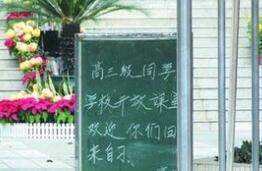 高三级同学
学校开放课室
欢迎你们回
来自习